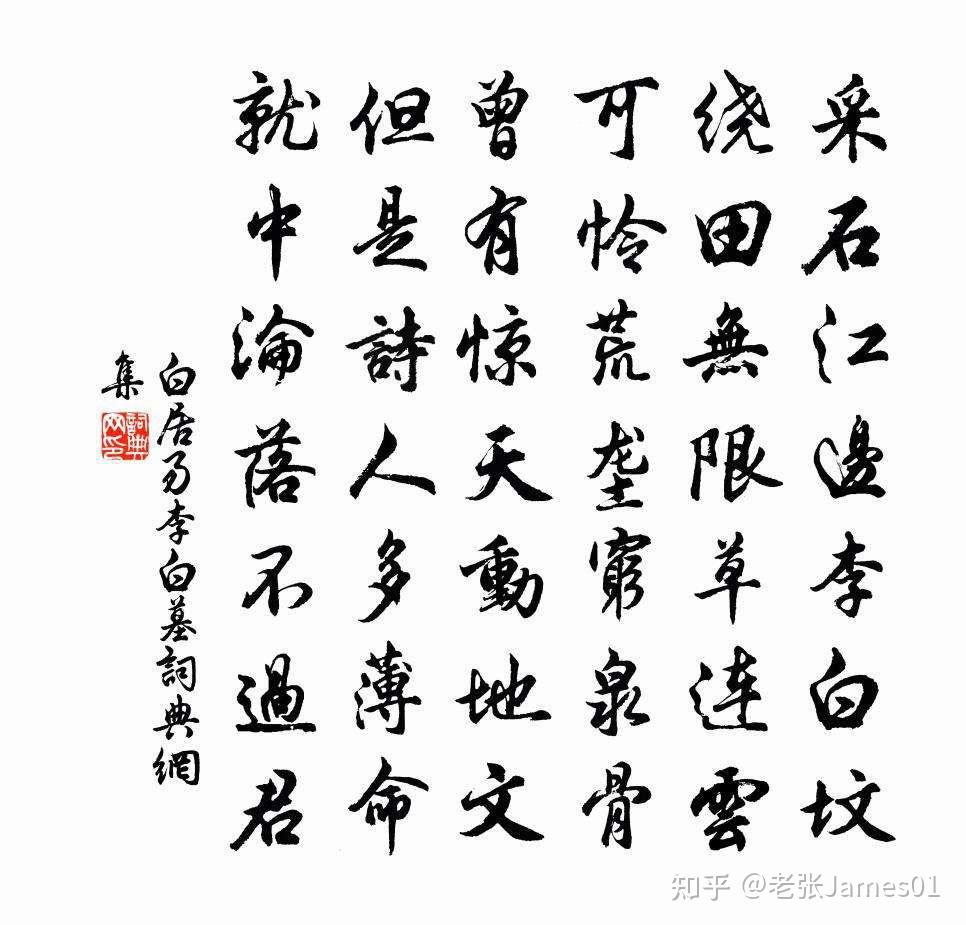 采石江邊李白坟
绕田無限草连雲
可怜荒垄窮泉骨
曾有惊天動地文
但是詩人多薄命
就中淪落不過君
白居易李白墓詞典網
集
詞典网印
知乎 @老张James01